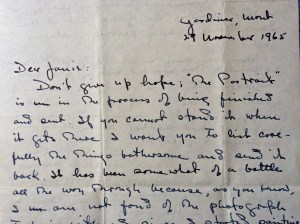 Gardiner, Mont
29 November 1965
Dear Janit:
Don't give up hope; "The Portrait"
is in the process of being finished
and sent. If you cannot stand it when
it gets there I want you to list care-
fully the things bothersome and send it
back. It has been somewhat of a battle
all the way through because, as you know,
I am not fond of the photograph